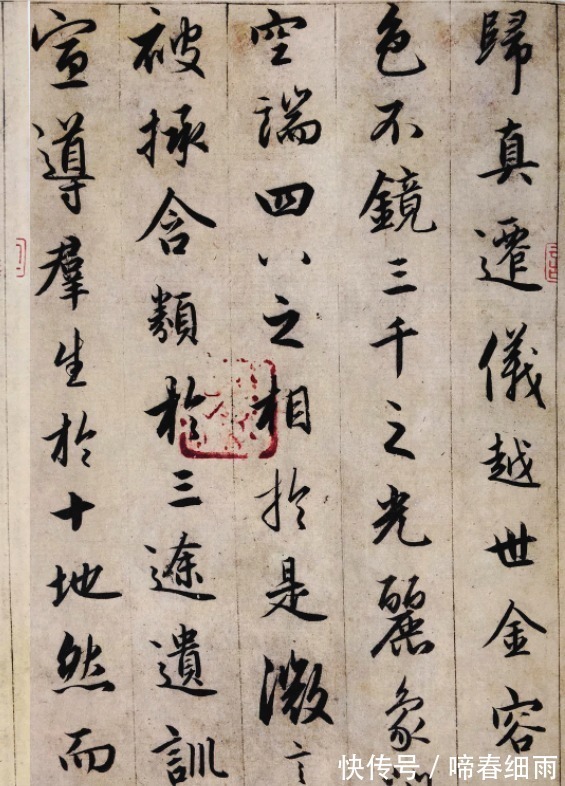 歸真遷儀越世金容
色不鏡三千之光麗象
空端四八之相於是微言
被拯含類於三途遺訓
宣導羣生於十地然而
快传号 / 啼春细雨